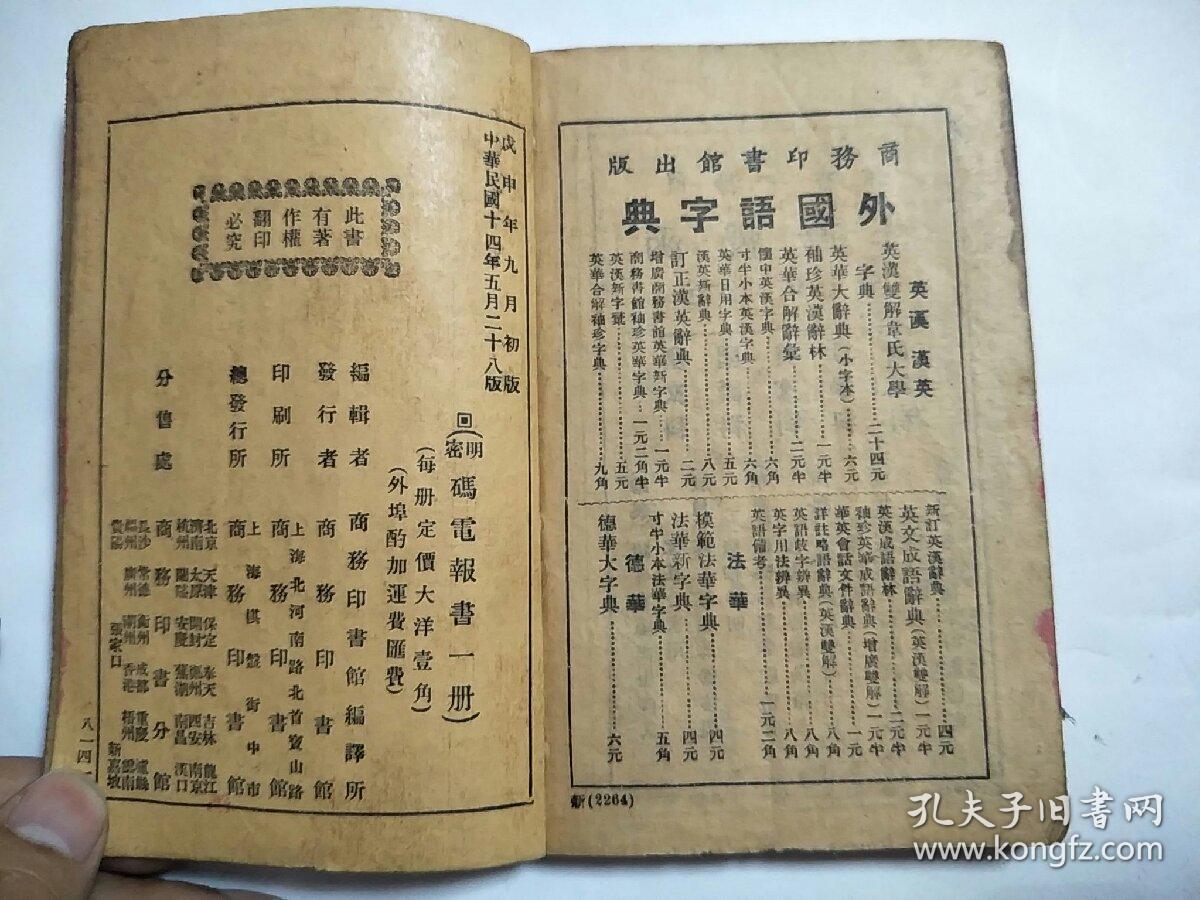 商務印書館出版
外國語字典
英漢漢英
英漢雙解韋氏大學
字典……二十四元
英華大辭典(小字本)……六元
袖珍英漢辭林……一元半
英華合解辭彙……二元半
懷中英漢字典……六角
寸半小本英漢字典……六角
英華日用字典……五元
漢英新辭典……八元
訂正漢英辭典……二元
增廣商務書館英華新字典……一元半
商務書館袖珍英華字典……一元二角半
英漢新字彙……五元
英華合解袖珍字典……九角
新訂英漢辭典……四元
英文成語辭典(英漢雙解)……一元半
英漢成語辭林……二元半
袖珍英華成語辭典(增廣雙解)……一元半
華英會話文件辭典……一元
詳註略語辭典(英漢雙解)……八角
英語歧字辨異……八角
英字用法辨異……八角
英語備考……一元二角
法華
模範法華字典……四元
法華新字典……四元
寸半小本法華字典……五角
德華
德華大字典……六元
新(2264)
戊申年九月初版
中華民國十四年五月二十八版
回(明密碼電報書一册)
(每册定價大洋壹角)
(外埠酌加運費匯費)
此書
有著
作權
翻印
必究
編輯者 商務印書館編譯所
發行者 商務印書館
印刷所 上海北河南路北首寶山路 商務印書館
總發行所 上海棋盤街中市 商務印書館
分售處 商務印書分館
北京 天津 保定 奉天 吉林 龍江
濟南 太原 開封 鄭州 西安 南京
杭州 蘭谿 安慶 蕪湖 南昌 漢口
長沙 常德 衡州 成都 重慶 瀘縣
福州 廣州 潮州 香港 梧州 雲南
貴陽 張家口 新嘉坡
八一四
孔夫子旧书网
www.kongfz.com